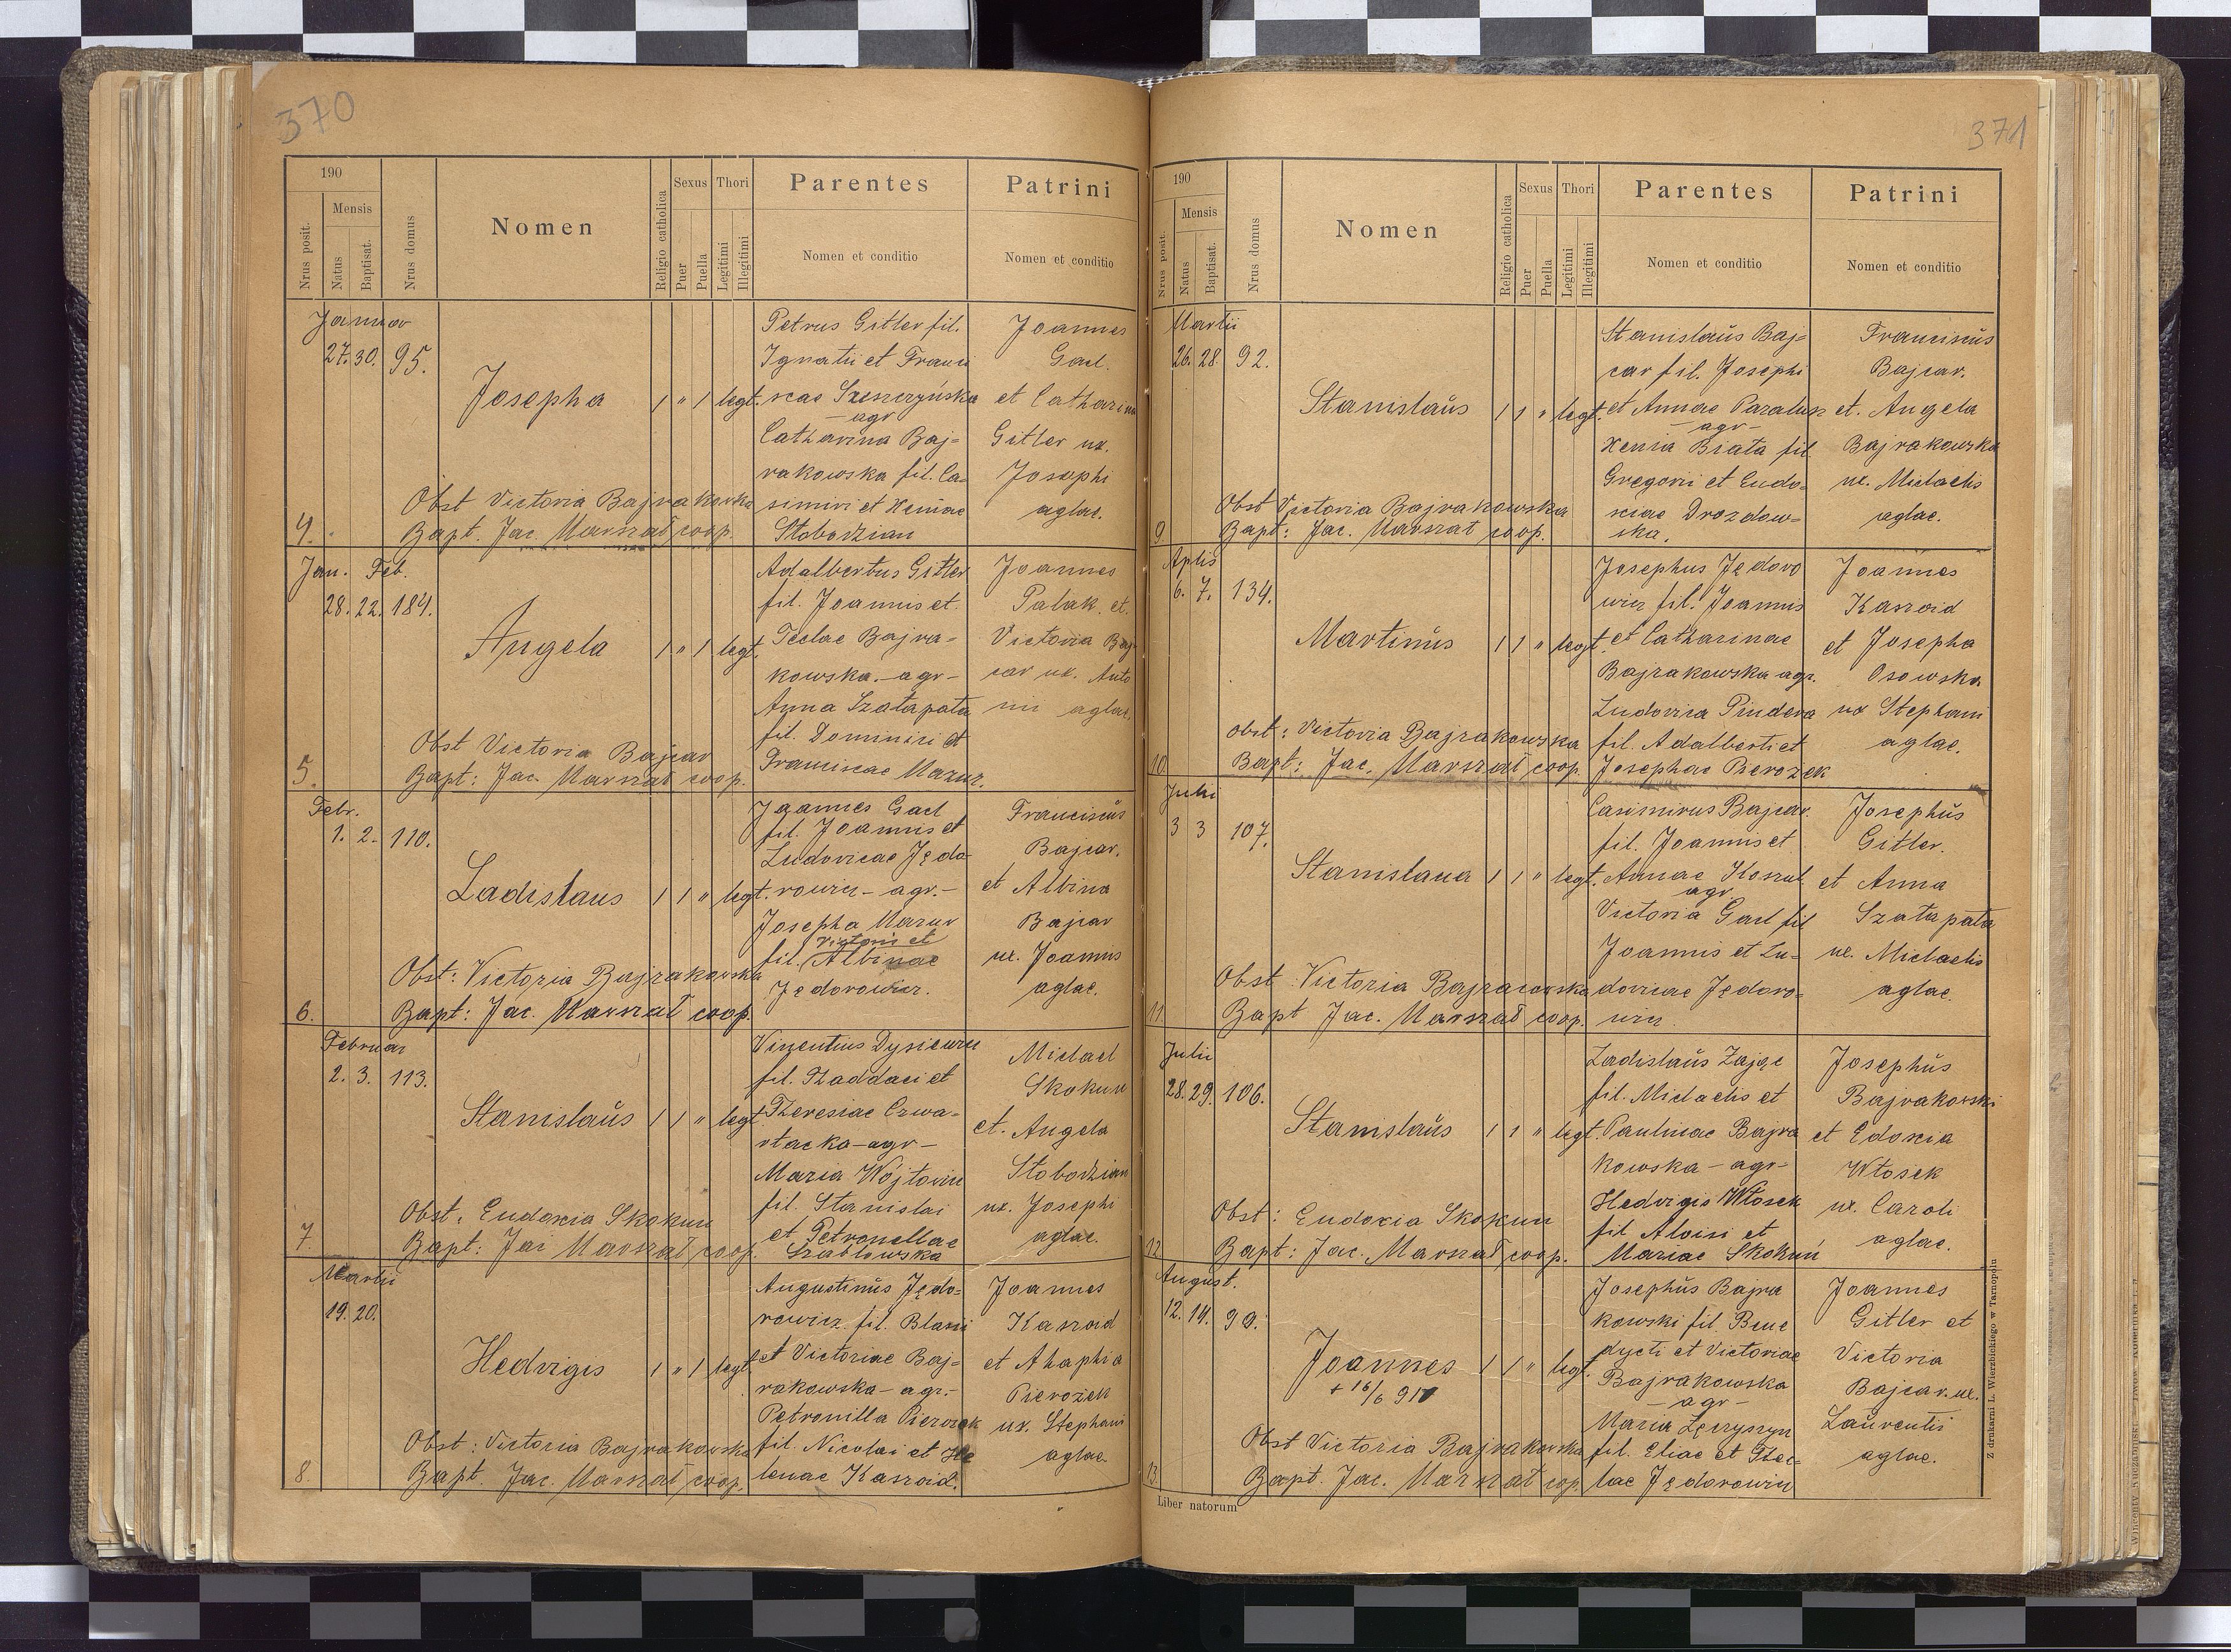 370
190
Nrus posit.
Mensis
Natus
Baptisat.
Nrus domus
Nomen
Religio catholica
Sexus
Puer
Puella
Thori
Legitimi
Illegitimi
Parentes
Nomen et conditio
Patrini
Nomen et conditio
Januar
27. 30. 95.
Josepha
1 " 1 legt.
Petrus Gitler fil.
Ignatii et Franci
scae Szeszczyńska
- agr
Catharina Baj=
rakowska fil. Ca=
simiri et Xeniae
Słobodzian
Joannes
Gacl.
et Catharina
Gitler ux.
Josephi
aglae.
Obst Victoria Bajrakowska
4. Bapt. Jac. Marszał coop.
Jan. Feb.
28. 22. 184.
Angela
1 " 1 legt.
Adalbertus Gitler
fil. Joannis et
Teclae Bajra=
kowska. - agr -
Anna Szałapata
fil. Dominici et
Franciscae Mazur.
Joannes
Palak. et.
Victoria Baj
car ux. Anto
nii aglae.
Obst Victoria Bajcar
5. Bapt: Jac. Marszał coop.
Febr.
1. 2. 110.
Ladislaus
1 1 " legt.
Joannes Gacl
fil. Joannis et
Ludovicae Jędo
rowicz - agr. -
Josepha Mazur
Victoris et
fil. Albinae
Jędorowicz.
Franciscus
Bajcar.
et Albina
Bajcar
ux. Joannis
aglae.
Obst: Victoria Bajrakowska
6. Bapt: Jac. Marszał coop.
Februar
2. 3. 113.
Stanislaŭs
1 1 " legt.
Vincentius Dysiewicz
fil. Thaddaei et
Theresiae Czwa=
rtacka - agr -
Maria Wójtowicz
fil. Stanislai
et Petronellae
Szabłowska
Michael
Skokun
et. Angela
Słobodzian
ux. Josephi
aglae.
Obst. Eudoxia Skokun
7. Bapt: Jac Marszał coop.
Martii
19. 20.
Hedvigis
1 " 1 legt.
Augustinŭs Jędo=
rowicz. fil. Blasii
et Victoriae Baj=
rakowska - agr. -
Petronilla Pierożek
fil. Nicolai et He
lenae Kasroid.
Joannes
Kasroid
et Ahaphia
Pierożek
ux. Stephani
aglae.
Obst: Victoria Bajrakowska
8. Bapt. Jac. Marszał coop.
371
190
Nrus posit.
Mensis
Natus
Baptisat.
Nrus domus
Nomen
Religio catholica
Sexus
Puer
Puella
Thori
Legitimi
Illegitimi
Parentes
Nomen et conditio
Patrini
Nomen et conditio
Martii
26. 28 92.
Stanislaŭs
1 1 " legt.
Stanislaŭs Baj=
car fil. Josephi
et Annae Paraluk
- agr -
Xenia Biała fil
Gregorii et Eudo=
xiae Drozdow=
ska.
Franciscŭs
Bajcar.
et. Angela
Bajrakowska
ux. Michaelis
aglae.
Obst Victoria Bajrakowska
9 Bapt: Jac. Marszał coop.
Aplis
6. 7. 134.
Martinŭs
1 1 " legt.
Josephus Jędoro
wicz fil. Joannis
et Catharinae
Bajrakowska agr.
Ludovica Pindera
fil. Adalberti et
Josephae Pierożek
Joannes
Kasroid
et Josepha
Osowska
ux Stephani
aglae.
obst: Victoria Bajrakowska
10 Bapt: Jac. Marszał coop.
Julii
3 3 107.
Stanislaua
1 1 " legt.
Casimirus Bajcar.
fil. Joannis et
Annae Koszul
agr
Victoria Gacl fil
Joannis et Lu=
dovicae Jędoro=
wicz
Josephŭs
Gitler.
et Anna
Szałapata
ux. Michaelis
aglae.
Obst: Victoria Bajracowska
11 Bapt Jac. Marszał coop.
Julii
28. 29. 106.
Stanislaŭs
1 1 " legt.
Ladislaŭs Zając
fil. Michaelis et
Paulinae Bajra
kowska - agr -
Hedvigis Włosek
fil Aloisi et
Mariae Skokun
Josephŭs
Bajrakowski
et Edoxia
Włosek
ux. Caroli
aglae.
Obst: Eudoxia Skokun
12 Bapt: Jac. Marszał coop.
August.
12. 14. 99.
Joannes
+ 16/6 911
1 1 " legt.
Josephŭs Bajra
kowski fil. Bene
dycti et Victoriae
Bajrakowska
- agr -
Maria Łęczyszyn
fil. Eliae et Thec=
lae Jędorowicz
Joannes
Gitler et
Victoria
Bajcar ux.
Laŭrentii
aglae.
Obst Victoria Bajrakowska
13 Bapt. Jac. Marszał cop.
Liber natorum
Z drukarni L. Wierzbickiego w Tarnopolu